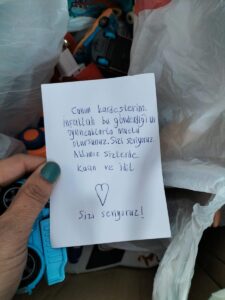 Canım kardeşlerim.
İnşallah bu gönderdiğim
oyuncaklarla mutlu
olursunuz. Sizi seviyoruz.
Aklımız sizlerde.
Kaan ve
Sizi seviyoruz!